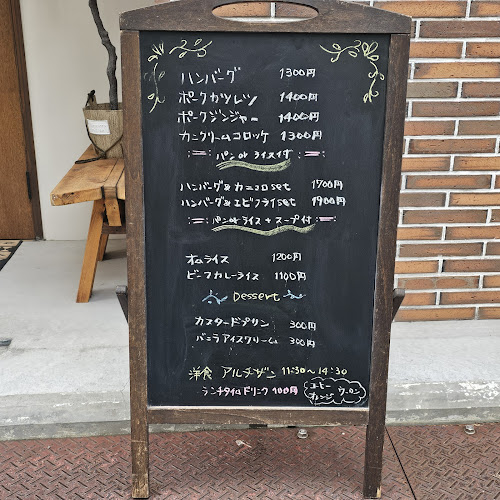 ハンバーグ 1300円
ポークカツレツ 1400円
ポークジンジャー 1400円
カニクリームコロッケ 1300円
パン or ライス付
ハンバーグ&カニコロset 1700円
ハンバーグ&エビフライset 1900円
パン or ライス + スープ付
オムライス 1200円
ビーフカレーライス 1100円
Dessert
カスタードプリン 300円
バニラアイスクリーム 300円
洋食 アルチザン 11:30〜14:30
ランチタイムドリンク 100円
コーヒー ウーロン
オレンジ